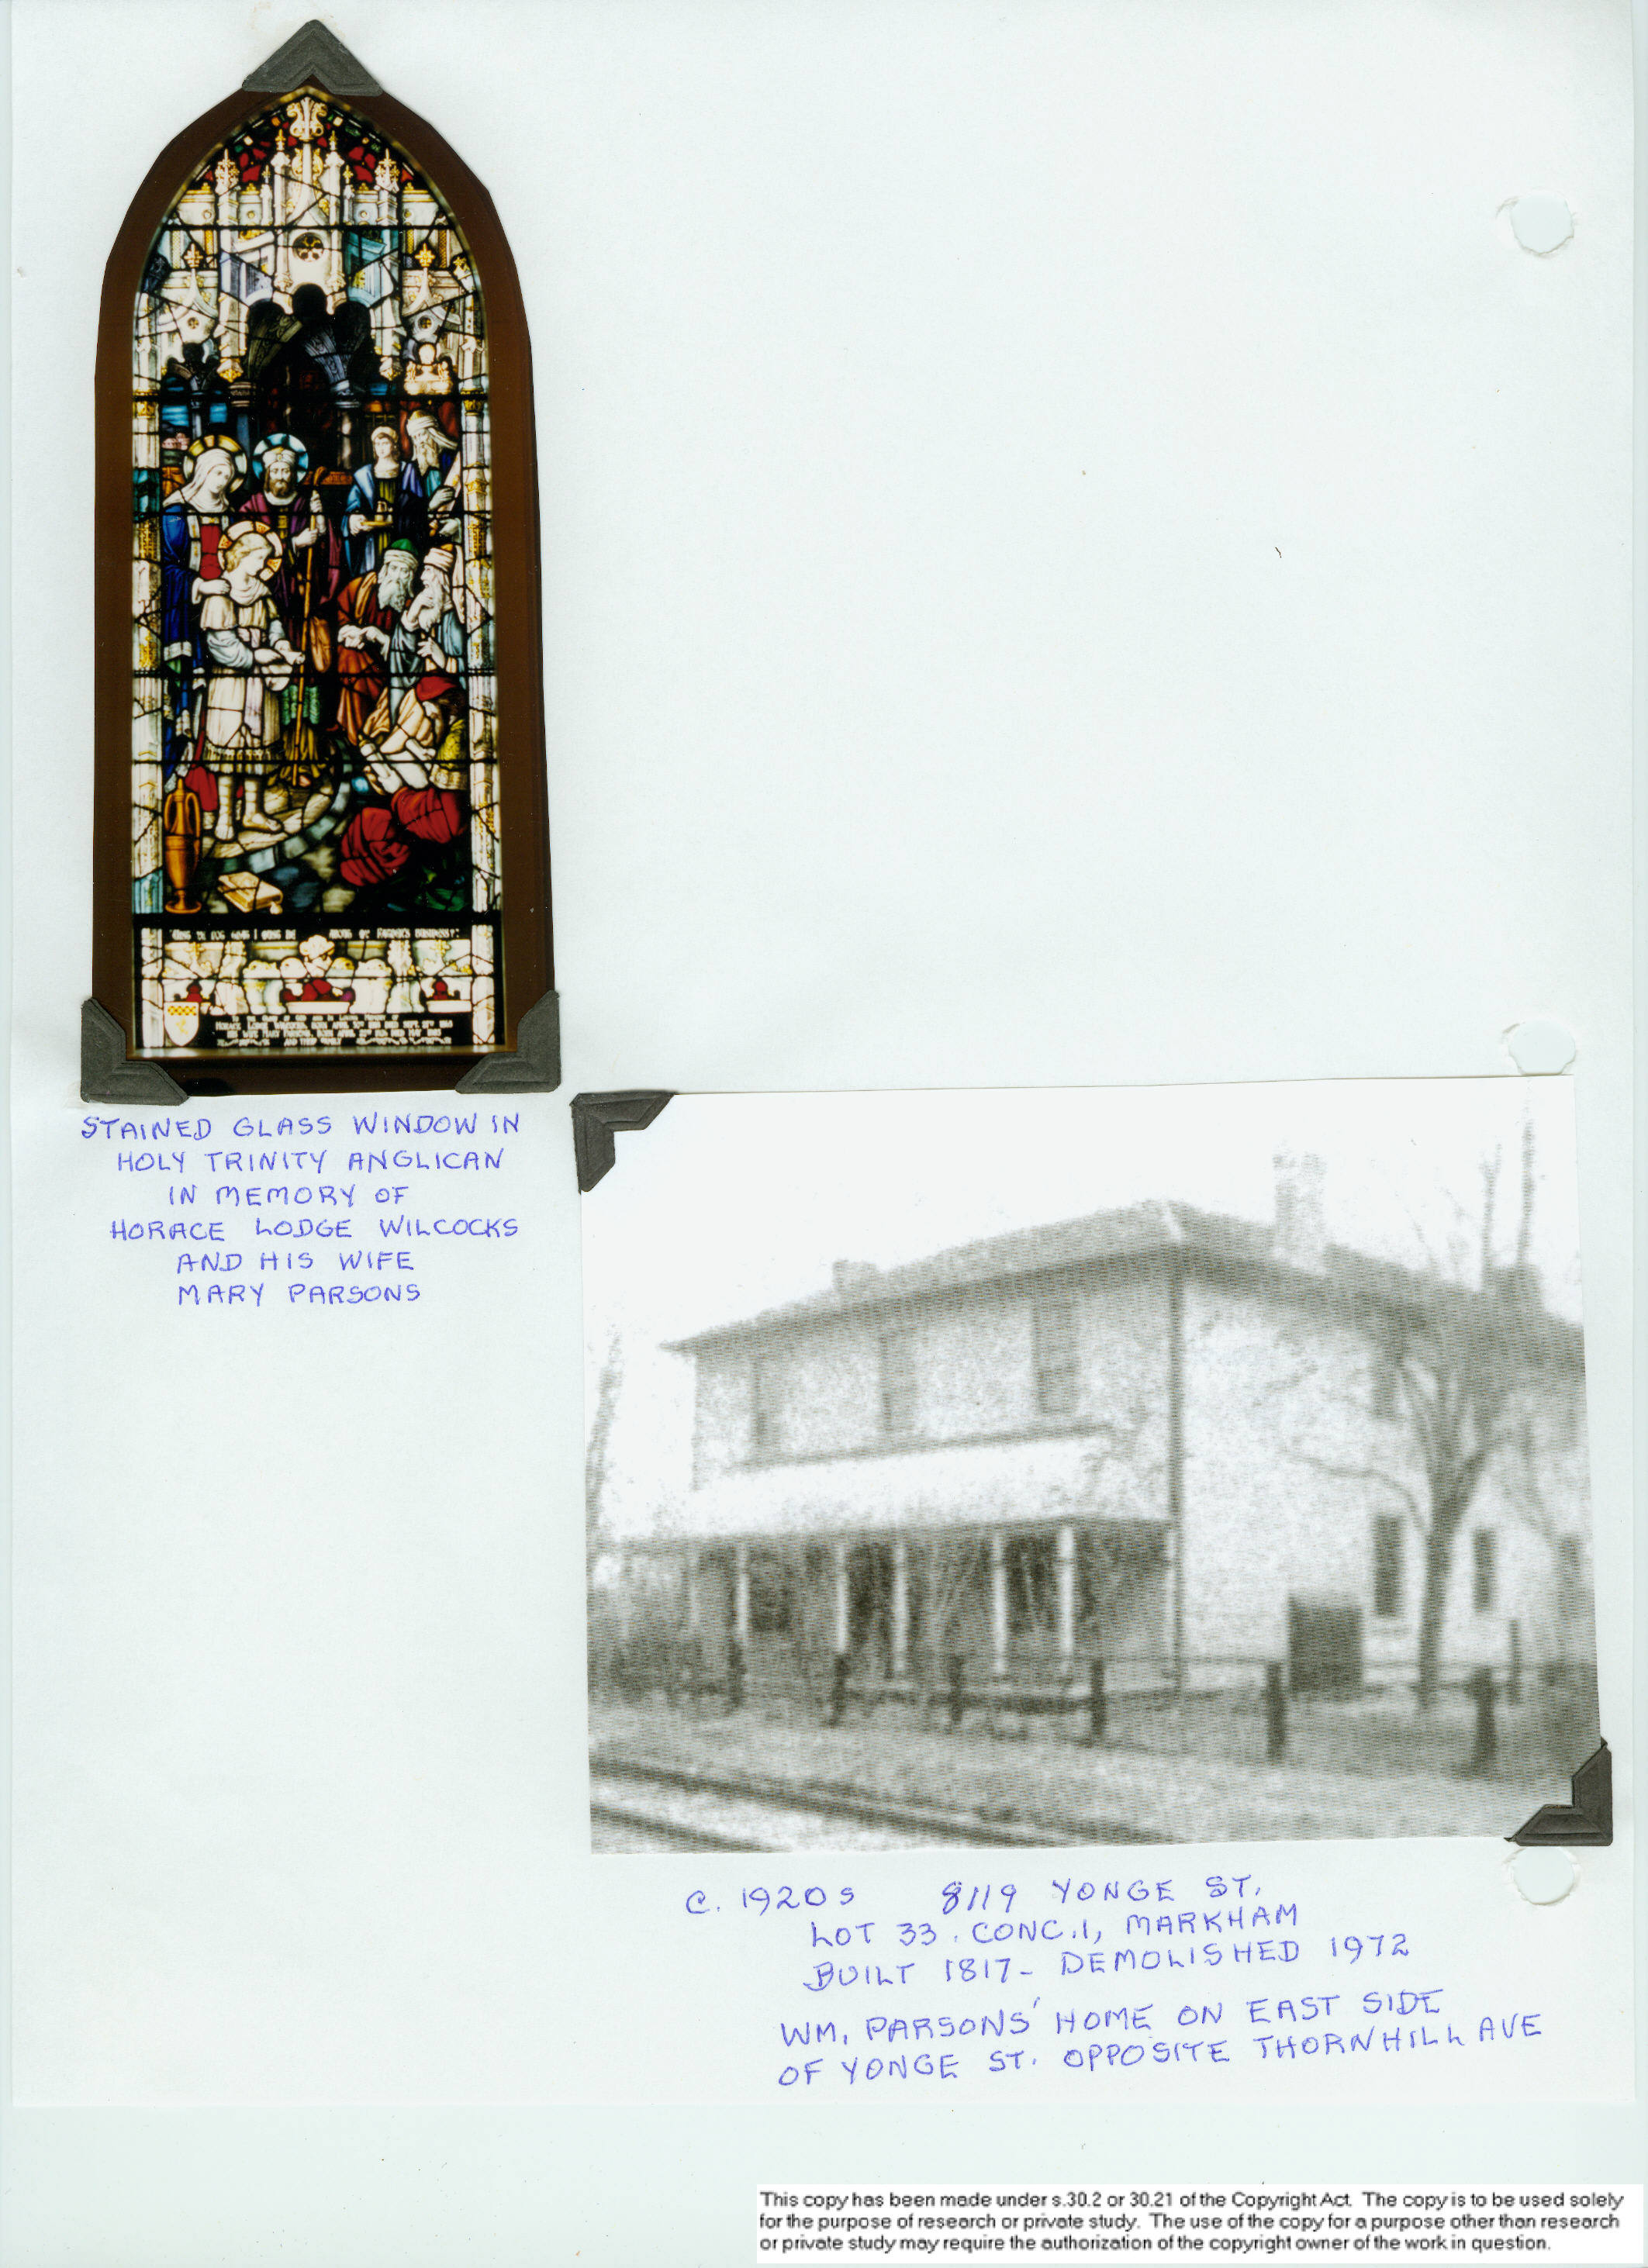 STAINED GLASS WINDOW IN
HOLY TRINITY ANGLICAN
IN MEMORY OF
HORACE LODGE WILCOCKS
AND HIS WIFE
MARY PARSONS
C. 1920s 8119 YONGE ST.
LOT 33. CONC.1, MARKHAM
BUILT 1817- DEMOLISHED 1972
WM. PARSONS' HOME ON EAST SIDE
OF YONGE ST. OPPOSITE THORNHILL AVE
This copy has been made under s.30.2 or 30.21 of the Copyright Act. The copy is to be used solely
for the purpose of research or private study. The use of the copy for a purpose other than research
or private study may require the authorization of the copyright owner of the work in question.